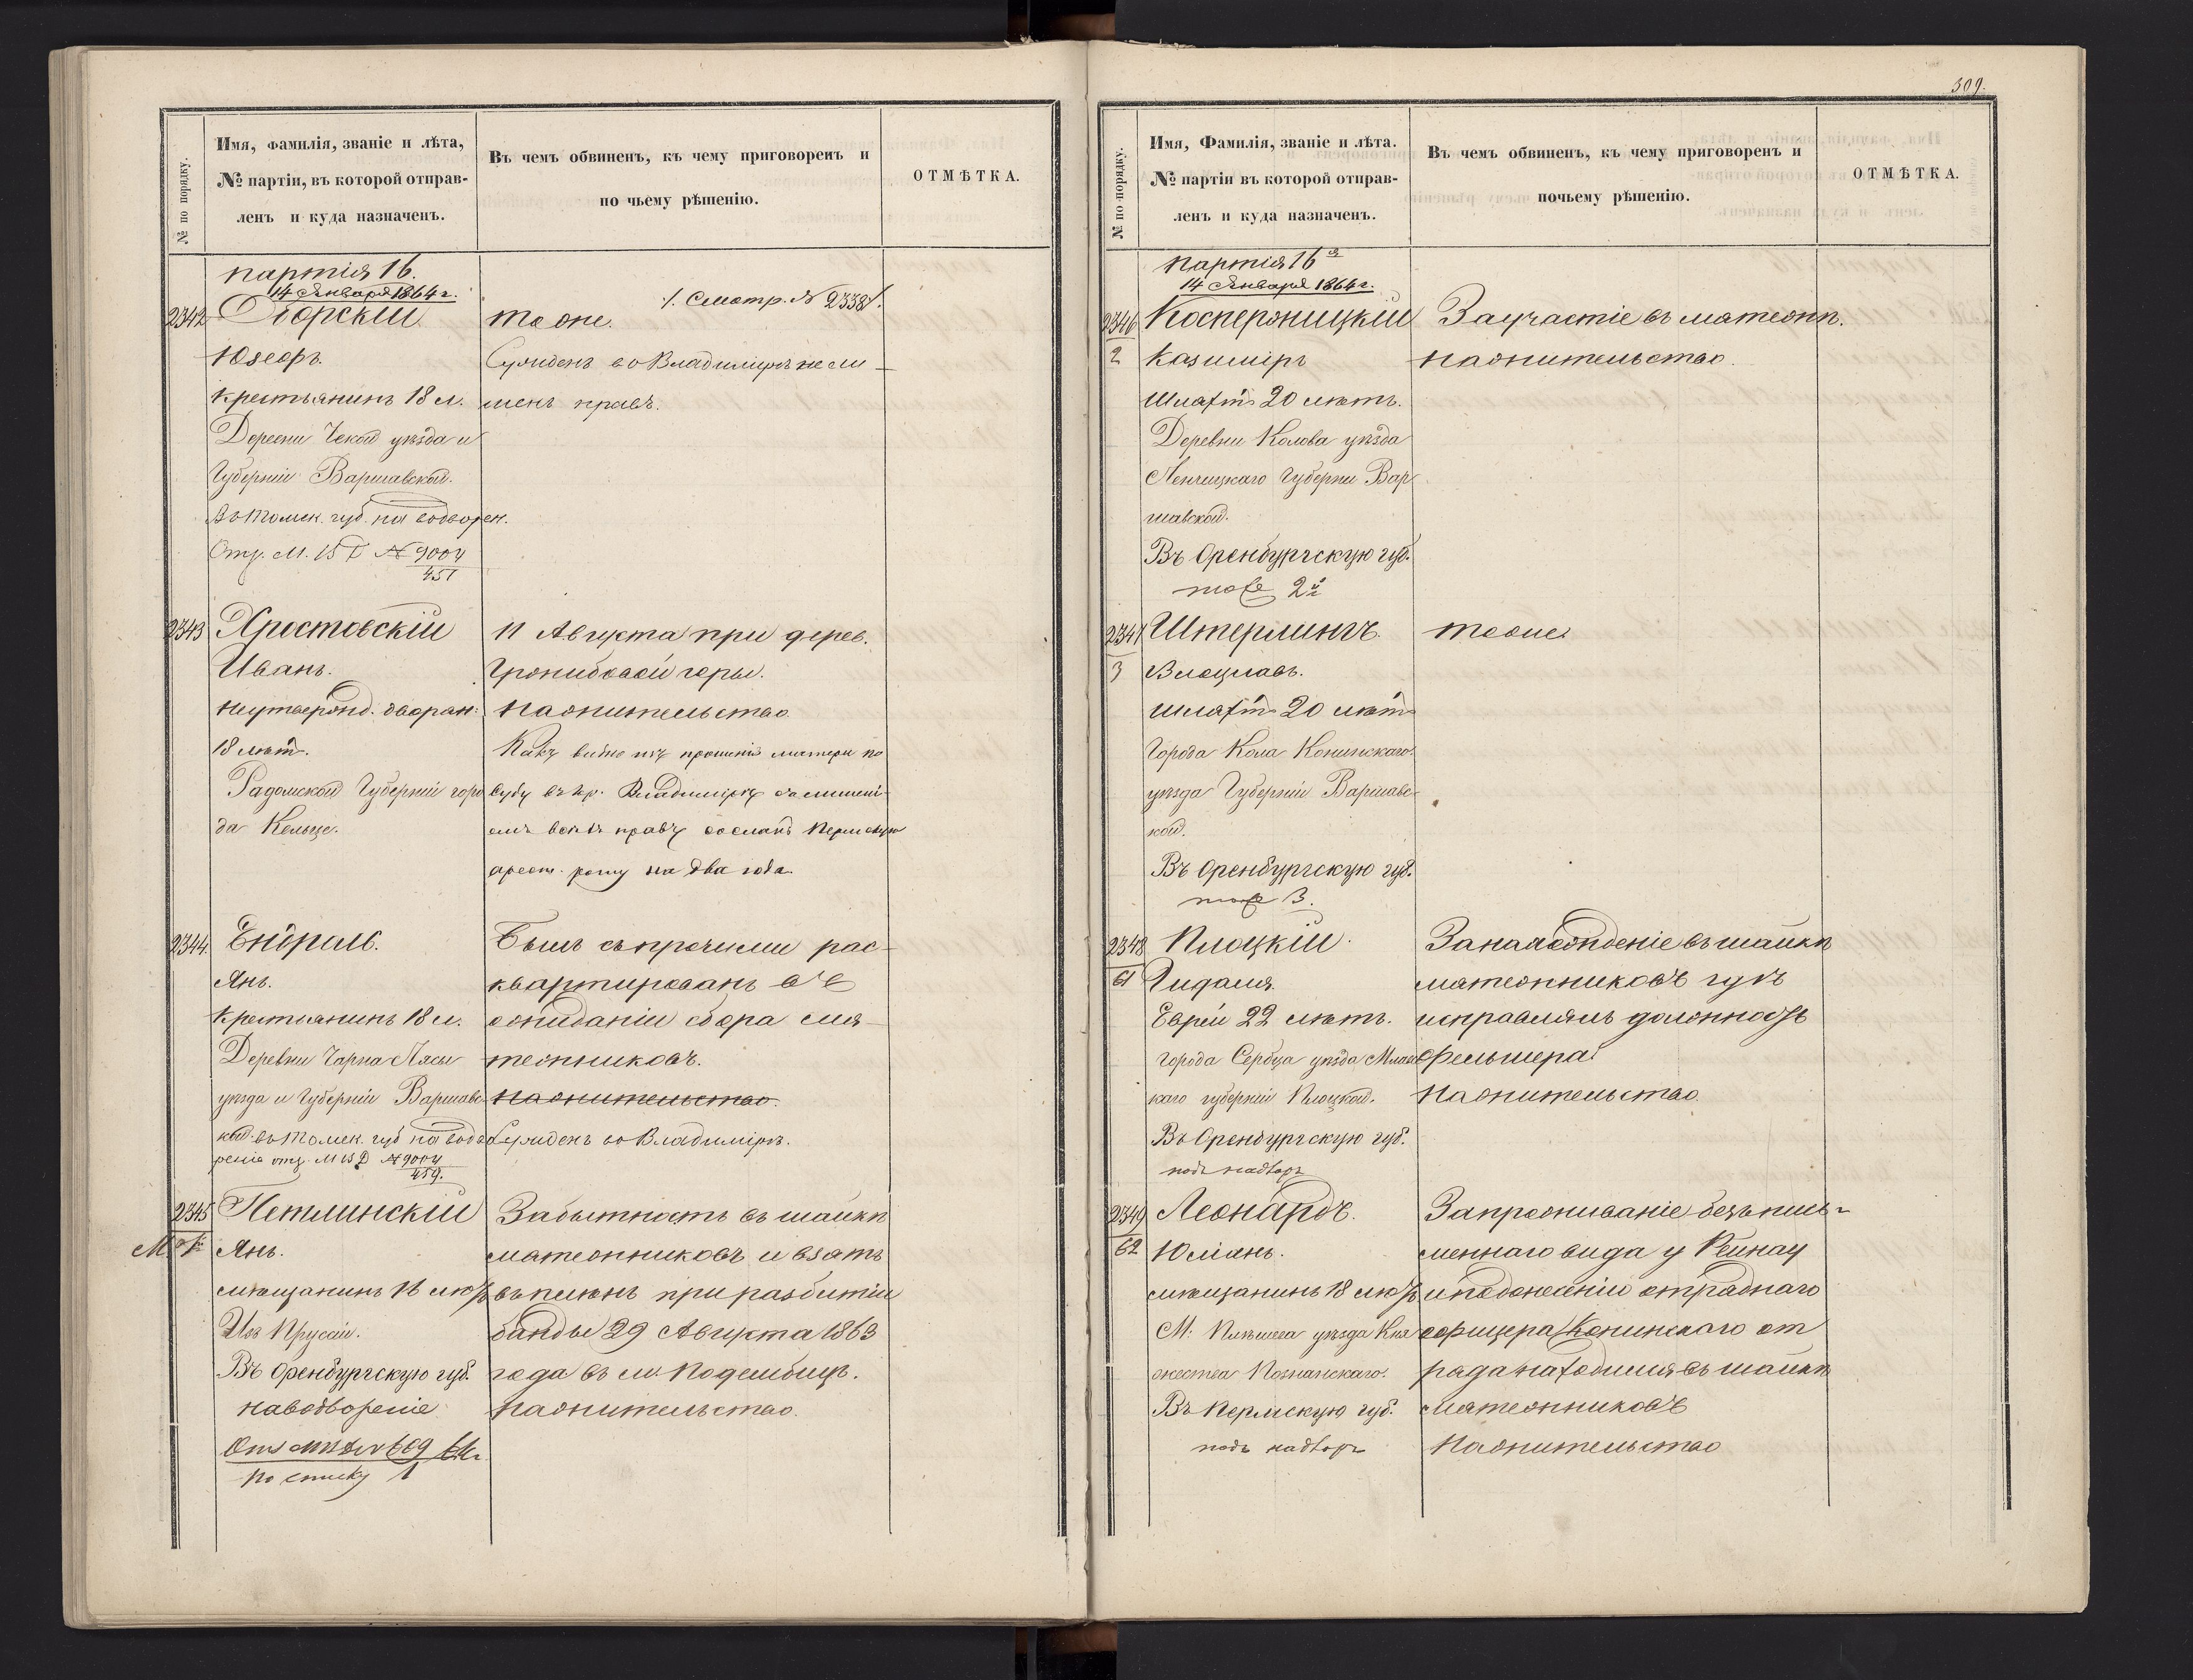 № по порядку.
Имя, Фамилія, званіе и лѣта,
№ партіи, въ которой отправ-
ленъ и куда назначенъ.
Въ чемъ обвиненъ, къ чему приговоренъ и
по чьему рѣшенію.
ОТМѢТКА.
партія 16.
14 Января 1864 г.
/. Смотр. № 2338/.
2342 Оборскій
Юзефъ.
крестьянинъ 18 л.
Деревни Чекой уѣзда и
Губерніи Варшавской.
Въ Томск. губ. на водворен.
Отз. М. 15 № 9004
451
тоже.
Сужденъ во Владимірѣ не ли-
шенъ правъ.
2343 Хростовскій
Иванъ.
Неутвержд. дворян:
18 лѣтъ.
Радомской Губерніи горо
да Кельце.
11 Августа при дерев.
Гронибовой горы.
На жительство
Какъ видно изъ прошенія матери по
суду въ гор. Владимірѣ съ лишені-
емъ всѣхъ правъ сосланъ Пермскую
арест. роту на два года.
2344. Ендраль.
Янъ.
Крестьянинъ 18 л.
Деревни Чарна Лясы
уѣзда и Губерніи Варшавс-
кой. въ Томск. губ на водво
ренія отз. М 15 Д № 9004
459.
Былъ съ прочими рас-
квартированъ въ
ожиданіи сбора мя-
тежниковъ.
на жительство.
Сужденъ во Владимірѣ.
2345 Петлинскій
Янъ.
мѣщанинъ 16 лѣтъ
Изъ Пруссіи.
Въ Оренбургскую губ.
на водвореніе
по списку 1
За бытность въ шайкѣ
мятежниковъ и взятъ
въ плѣнъ при разбитіи
банды 29 Августа 1863
года въ м. Подембицъ.
на жительство.
309.
№ по порядку.
Имя, Фамилія, званіе и лѣта.
№ партіи въ которой отправ-
ленъ и куда назначенъ.
Въ чемъ обвиненъ, къ чему приговоренъ и
почьему рѣшенію.
ОТМѢТКА.
партія 16я
14 Января 1864 г.
2346 Носкержицкій
2 Казиміръ
Шляхт. 20 лѣтъ.
Деревни Колова уѣзда
Ленчицкаго Губерни Вар
шавской.
Въ Оренбургскую губ.
тоже 2й
За участіе въ мятежѣ.
на жительство.
2347 Штерлингъ.
3 Влоцлавъ.
шляхт. 20 лѣтъ
Города Кола Конинскаго
уѣзда Губерніи Варшавс-
кой.
Въ Оренбургскую губ.
тоже 3.
тоже
2348 Плоцкій.
61 Гидаля.
Еврей 22 лѣтъ.
города Сербца уѣзда Млавс
каго губерніи Плоцкой.
Въ Оренбургскую губ.
подъ надзоръ
За нахожденіе въ шайкѣ
мятежниковъ гдѣ
исправлялъ должность
Фельшера.
На жительство
2349 Леонардъ.
62 Юліанъ.
мѣщанинъ 18 лѣтъ
М. Плѣшева уѣзда Кня
жества Познанскаго.
Въ Пермскую губ.
подъ надзоръ
За проживаніе безъ пись-
меннаго вида у Рейнау
и по донесенію отряднаго
офицера Конинскаго от
ряда находился въ шайкѣ
мятежниковъ
На жительство